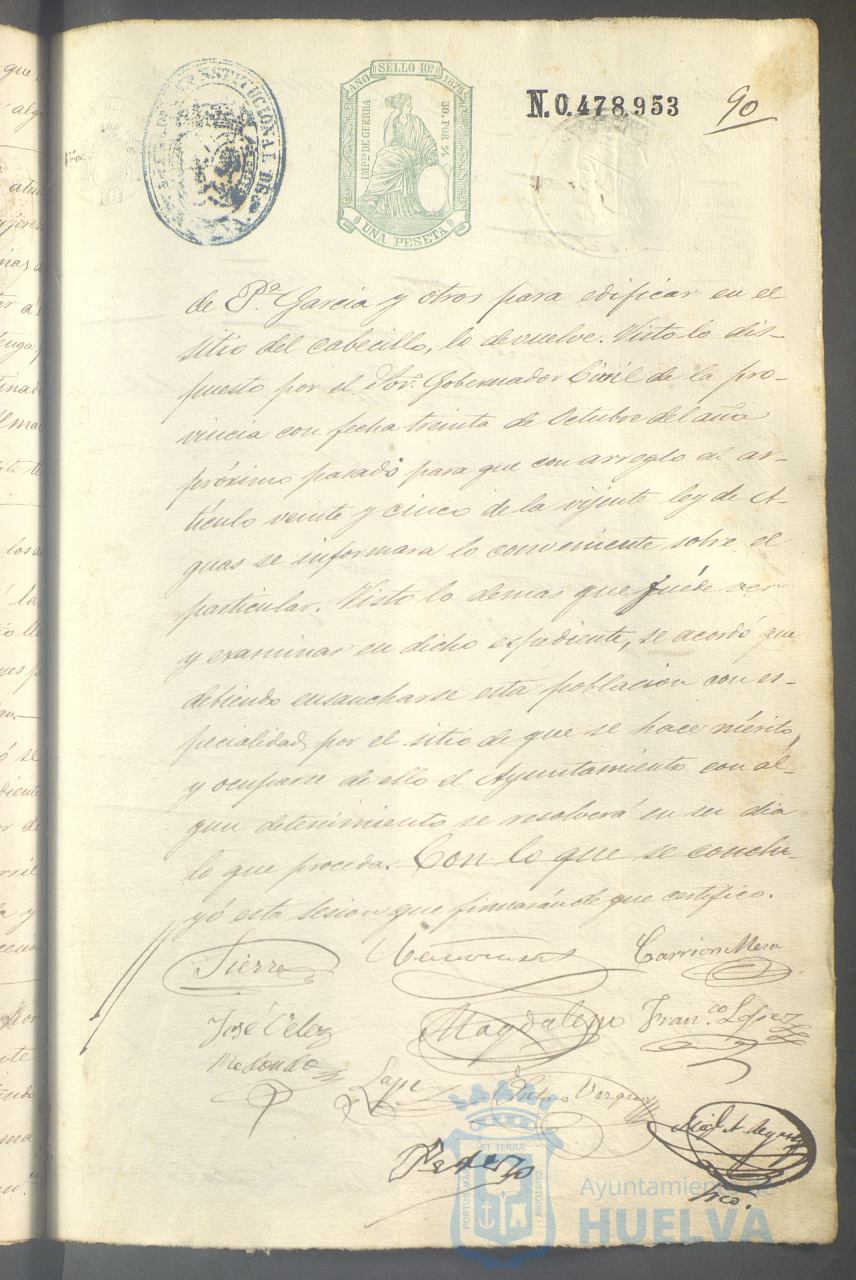 CONSTITUCIONAL DE
AÑO SELLO 10º 1878
IMPTO DE GUERRA
50. POR %
UNA PESETA
N.0.478.953
90
de Pª. Garcia y otros para edificar en el
sitio del cabecillo, lo devuelve. Visto lo dis-
puesto por el Sor. Gobernador Civil de la pro-
vincia con fecha treinta de Octubre del año
próximo pasado para que con arreglo al ar-
tículo veinte y cinco de la vijente ley de A-
guas se informara lo conveniente sobre el
particular. Visto lo demas que fué de ver
y examinar en dicho espediente, se acordó que
debiendo ensancharse esta poblacion con es-
pecialidad, por el sitio de que se hace mérito,
y ocuparse de ello el Ayuntamiento con al-
gun detenimiento se resolverá en su dia
lo que proceda. Con lo que se conclu-
yó esta sesion que firmarán de que certifico.
Sierra
Carrion Mera
José Velez
Magdaleno
Fran.co Lopez
Redondo
Vazquez
Srio.
PORTUS MARIS ET TERRÆ CUSTODIA
Ayuntamiento de
HUELVA